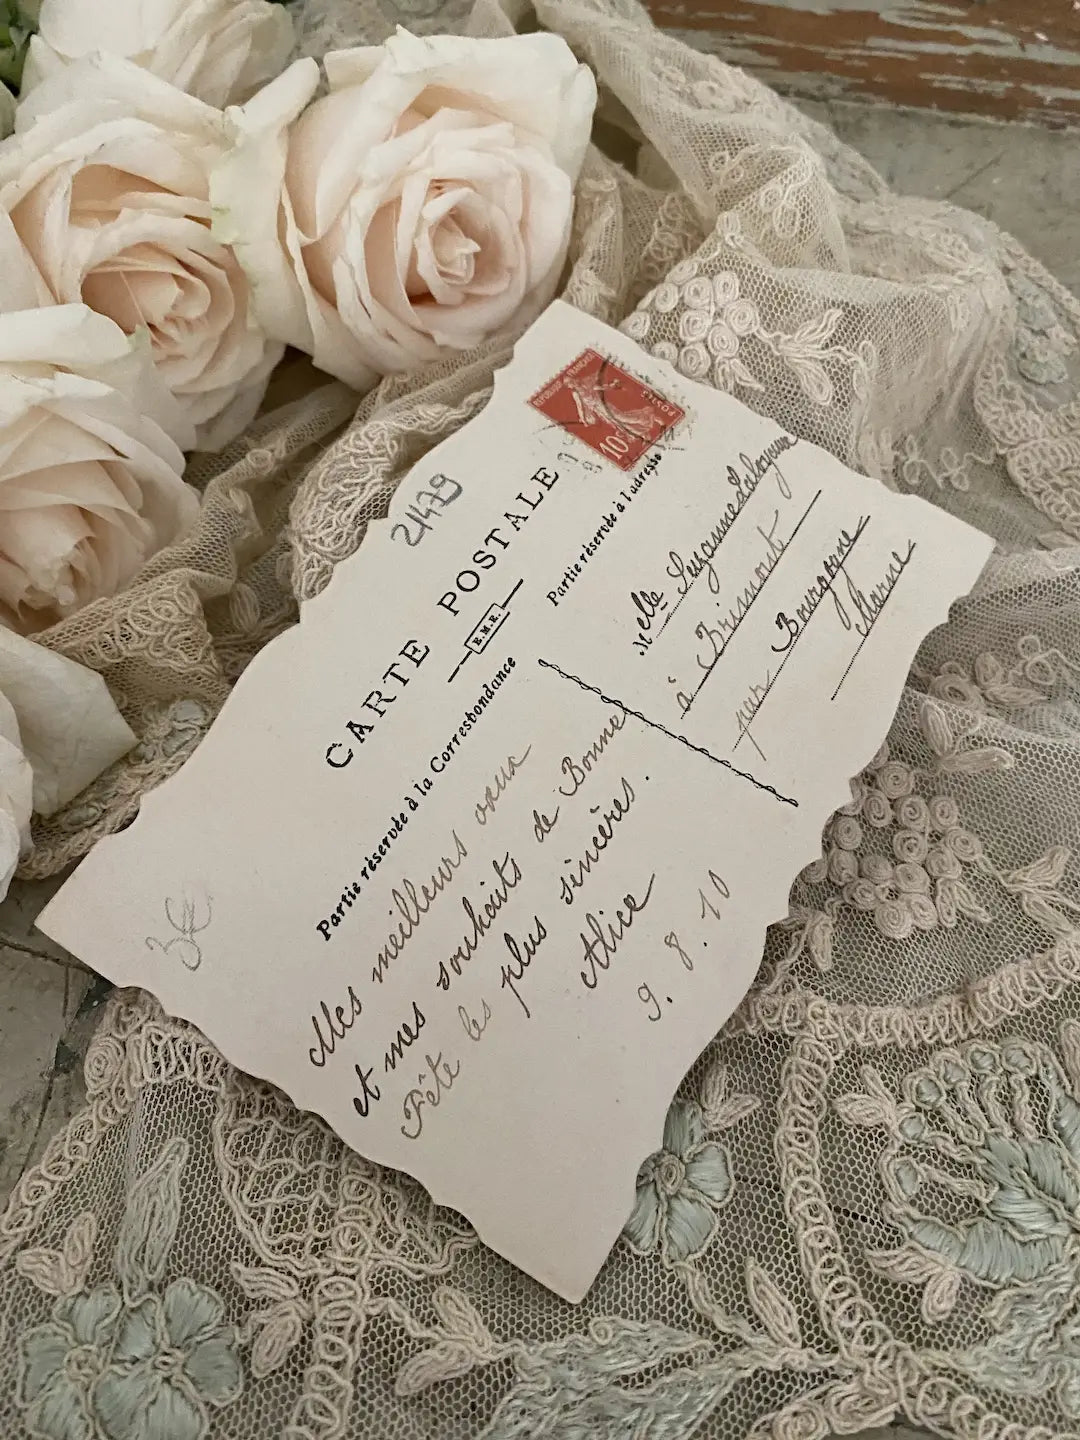 REPUBLIQUE FRANÇAISE
POSTES
10c
21479
CARTE POSTALE
E.M.E.
Partie réservée à la Correspondance
Partie réservée à l'adresse
Mes meilleurs vœux
et mes souhaits de Bonne
Fête les plus sincères.
Alice
9.8.10
Melle Suzanne
à Brimont
par Bourgogne
Marne
3€